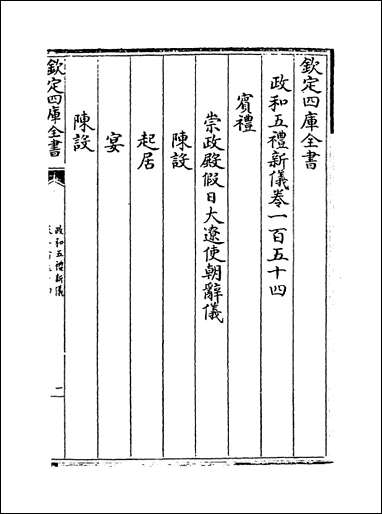 欽定四庫全書
政和五禮新儀卷一百五十四
賓禮
崇政殿假日大遼使朝辭儀
陳設
起居
宴
陳設
欽定四庫全書
政和五禮新儀